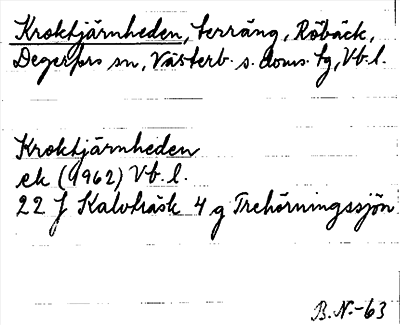 Kroktjärnheden, terräng, Röbäck,
Degerfors sn, Västerb. s. doms. tg, Vb. l.
Kroktjärnheden
ek (1962) Vb. l.
22 J Kalvträsk 4 g Trehörningssjön
B. N.-63